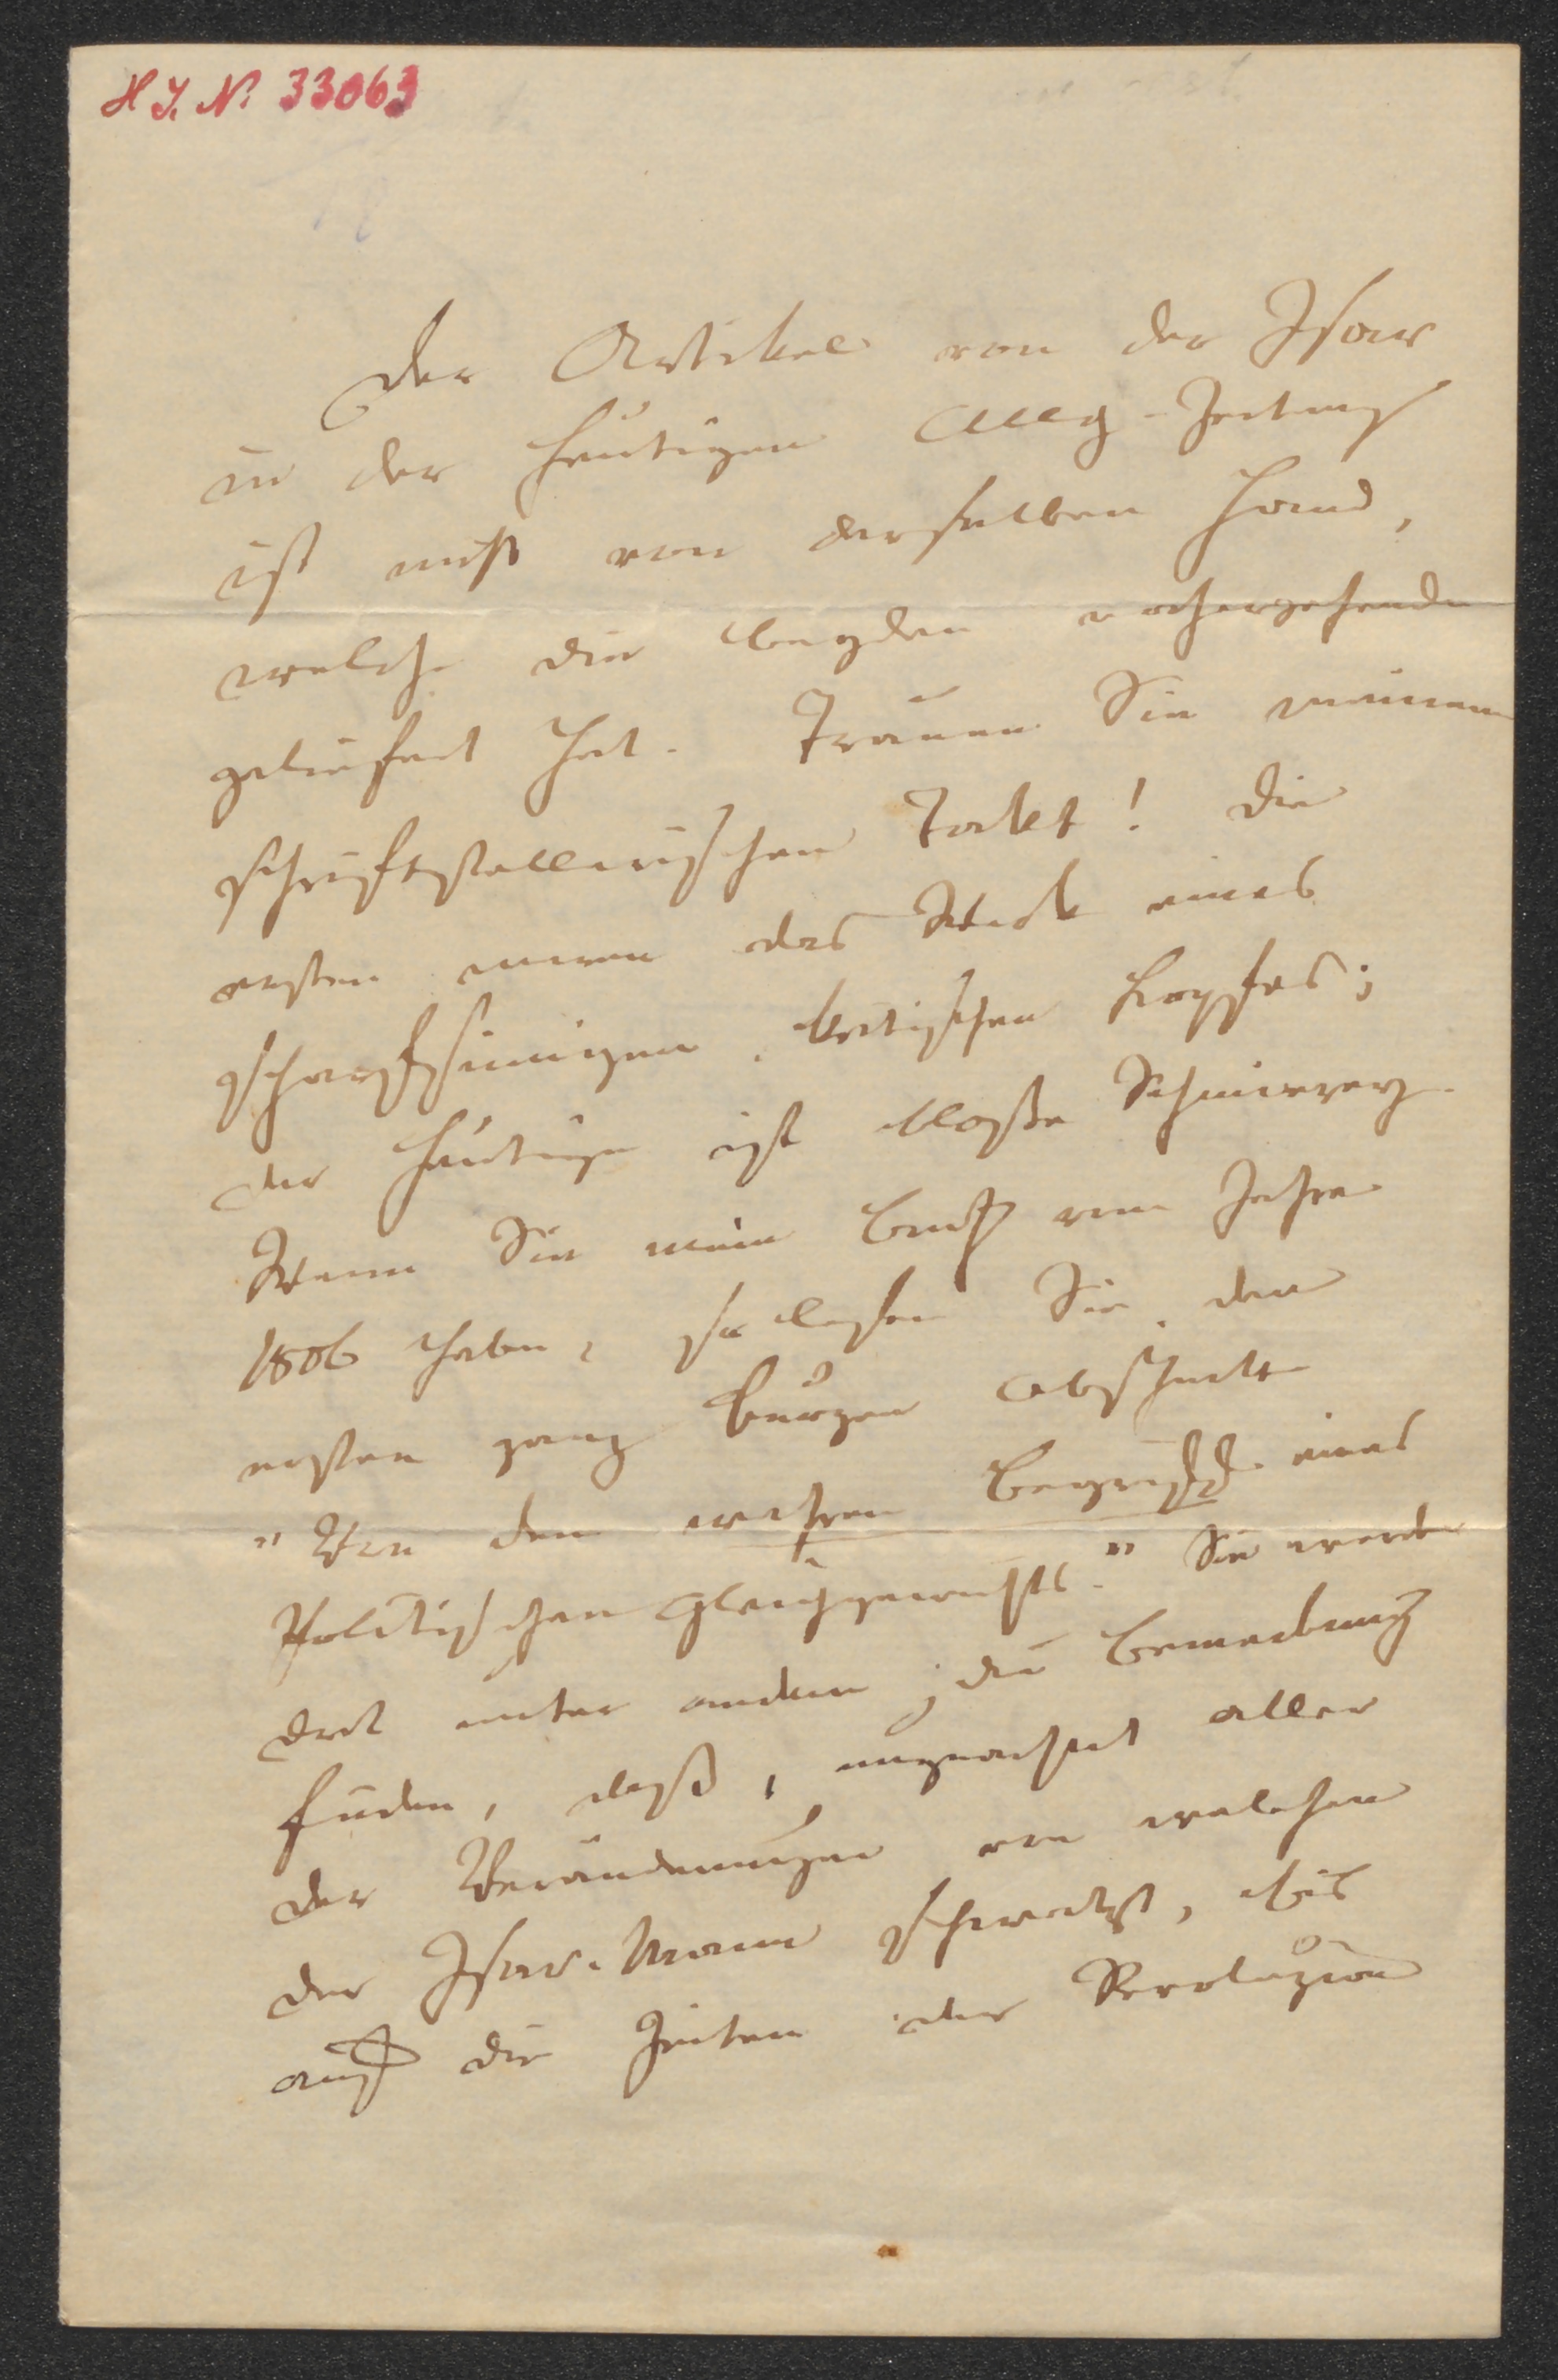 H. I. N. 33063
Der Artikel von der Isar
in der heutigen Allg-Zeitung
ist nicht von derselben Hand,
welche die beyden vorhergehende
geliefert hat. Trauen Sie meinem
schriftstellerischen Takt! Die
ersten waren das Werk eines
scharfsinnigen, kritischen Kopfes;
der heutige ist bloße Schmiererey.
Wenn Sie mein Buch vom Jahre
1806 haben, so lesen Sie den
ersten ganz kurzen Abschnitt
"Von dem wahren Begriff eines
Politischen Gleichgewichts." Sie werden
dort unter andern die Bemerkung
finden, daß, ungeachtet aller
der Veränderungen von welchen
der Isar-Mann schwatzt, bis
auf die Zeiten der Revoluzion